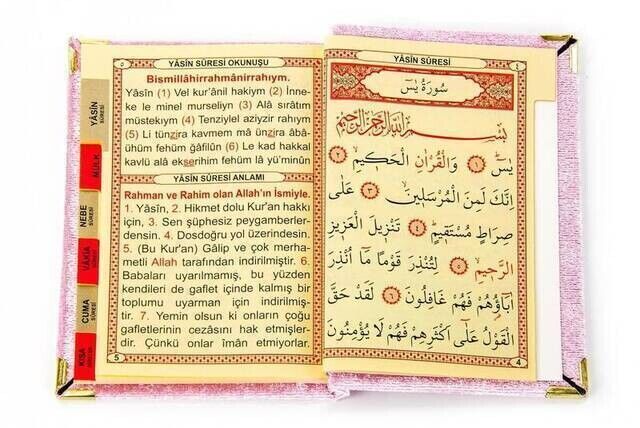 YÂSÎN SÛRESİ
MÜLK
NEBE SÛRESİ
VÂKIA SÛRESİ
CUMA SÛRESİ
KISA
٥ YÂSÎN SÛRESİ OKUNUŞU
Bismillâhirrahmânirrahıym.
Yâsîn (1) Vel kur'ânil hakiym (2) İnne-
ke le minel murseliyn (3) Alâ sırâtım
müstekıym (4) Tenziylel aziyzir rahıym
(5) Li tünzira kavmem mâ ünzira âbâ-
ühüm fehüm ğâfilûn (6) Le kad hakkal
kavlü alâ ekserihim fehüm lâ yü'minûn
YÂSÎN SÛRESİ ANLAMI
Rahman ve Rahim olan Allah'ın İsmiyle.
1. Yâsîn, 2. Hikmet dolu Kur'an hakkı
için, 3. Sen şüphesiz peygamberler-
densin. 4. Dosdoğru yol üzerindesin.
5. (Bu Kur'an) Gâlip ve çok merha-
metli Allah tarafından indirilmiştir. 6.
Babaları uyarılmamış, bu yüzden
kendileri de gaflet içinde kalmış bir
toplumu uyarman için indirilmiş-
tir. 7. Yemin olsun ki onların çoğu
gafletlerinin cezasını hak etmişler-
dir. Çünkü onlar îmân etmiyorlar.
5
YÂSÎN SÛRESİ ٤
سُورَةُ يٰسٓ
بِسْمِ اللّٰهِ الرَّحْمٰنِ الرَّحِيمِ
يٰسٓ ۝١ وَالْقُرْاٰنِ الْحَكِيمِ ۝٢
اِنَّكَ لَمِنَ الْمُرْسَلِينَ ۝٣ عَلٰى
صِرَاطٍ مُسْتَقِيمٍ ۝٤ تَنْزِيلَ الْعَزِيزِ
الرَّحِيمِ ۝٥ لِتُنْذِرَ قَوْمًا مَٓا اُنْذِرَ
اٰبَٓاؤُهُمْ فَهُمْ غَافِلُونَ ۝٦ لَقَدْ حَقَّ
الْقَوْلُ عَلٰٓى اَكْثَرِهِمْ فَهُمْ لَا يُؤْمِنُونَ
4